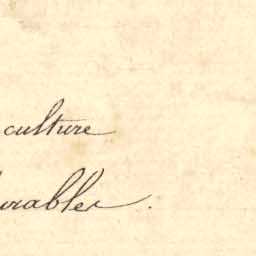 culture
urables.